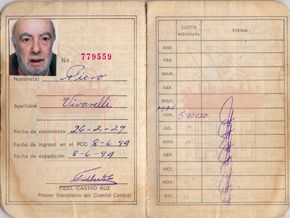 No. 779559
Nombre(s) Piero
Apellidos Vivarelli
Fecha de nacimiento 26-2-27
Fecha de ingreso en el PCC 8-6-94
Fecha de expedición 8-6-94
FIDEL CASTRO RUZ
Primer Secretario del Comité Central
CUOTA MENSUAL
FIRMA
ENE.
FEB.
MAR.
ABR.
MAY.
JUN.
JUL.
AGO.
SEP.
OCT.
NOV.
DIC.